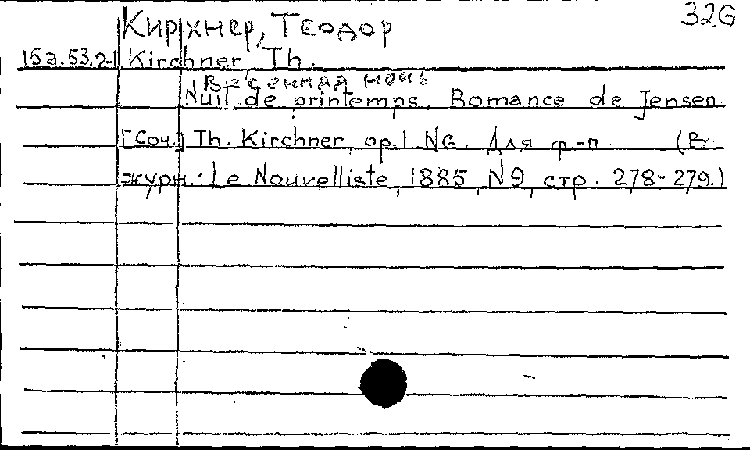 326
Кирхнер, Теодор
15а.53.2-1 Kirchner, Th.
Весенняя ночь
Nuit de printemps. Romance de Jensen.
[Соч.] Th. Kirchner, op.1 N6. Для ф.-п. (В
журн.: Le Nouvelliste, 1885, N9, стр. 278-279.)